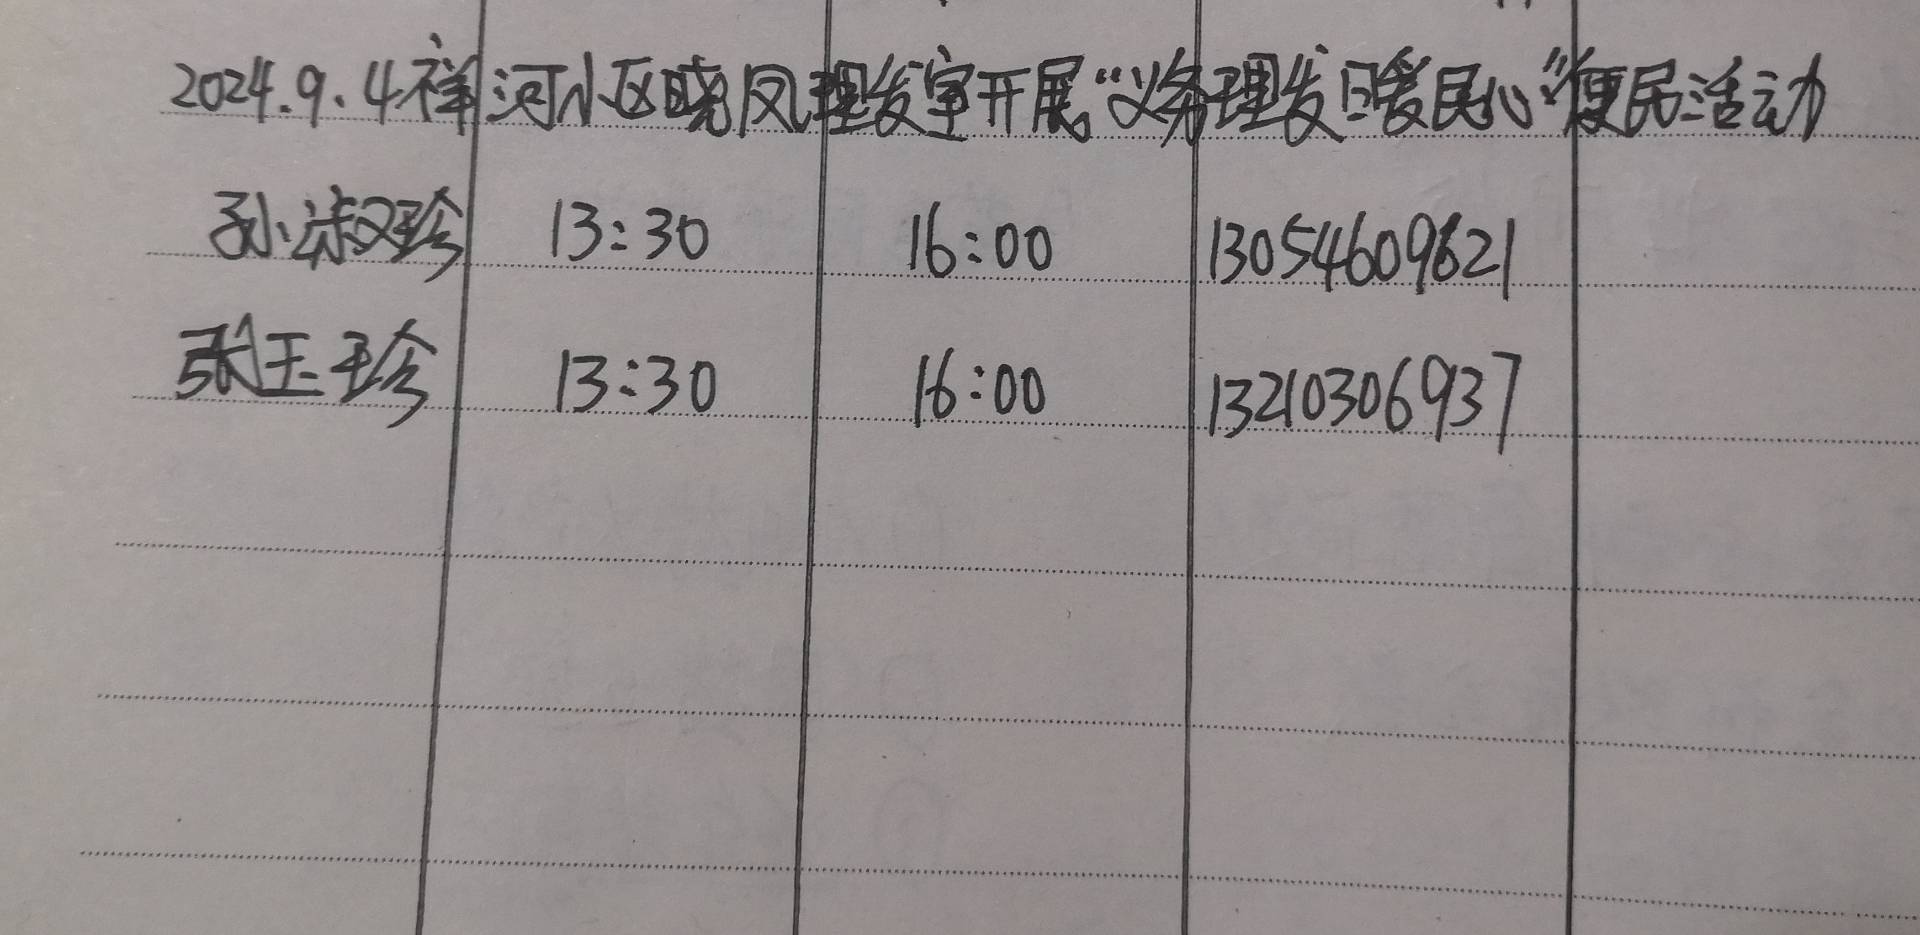 2024.9.4祥河小区晓凤理发室开展“义务理发日暖民心”便民活动
孙淑珍 13:30 16:00 13054609621
张玉珍 13:30 16:00 13210306937